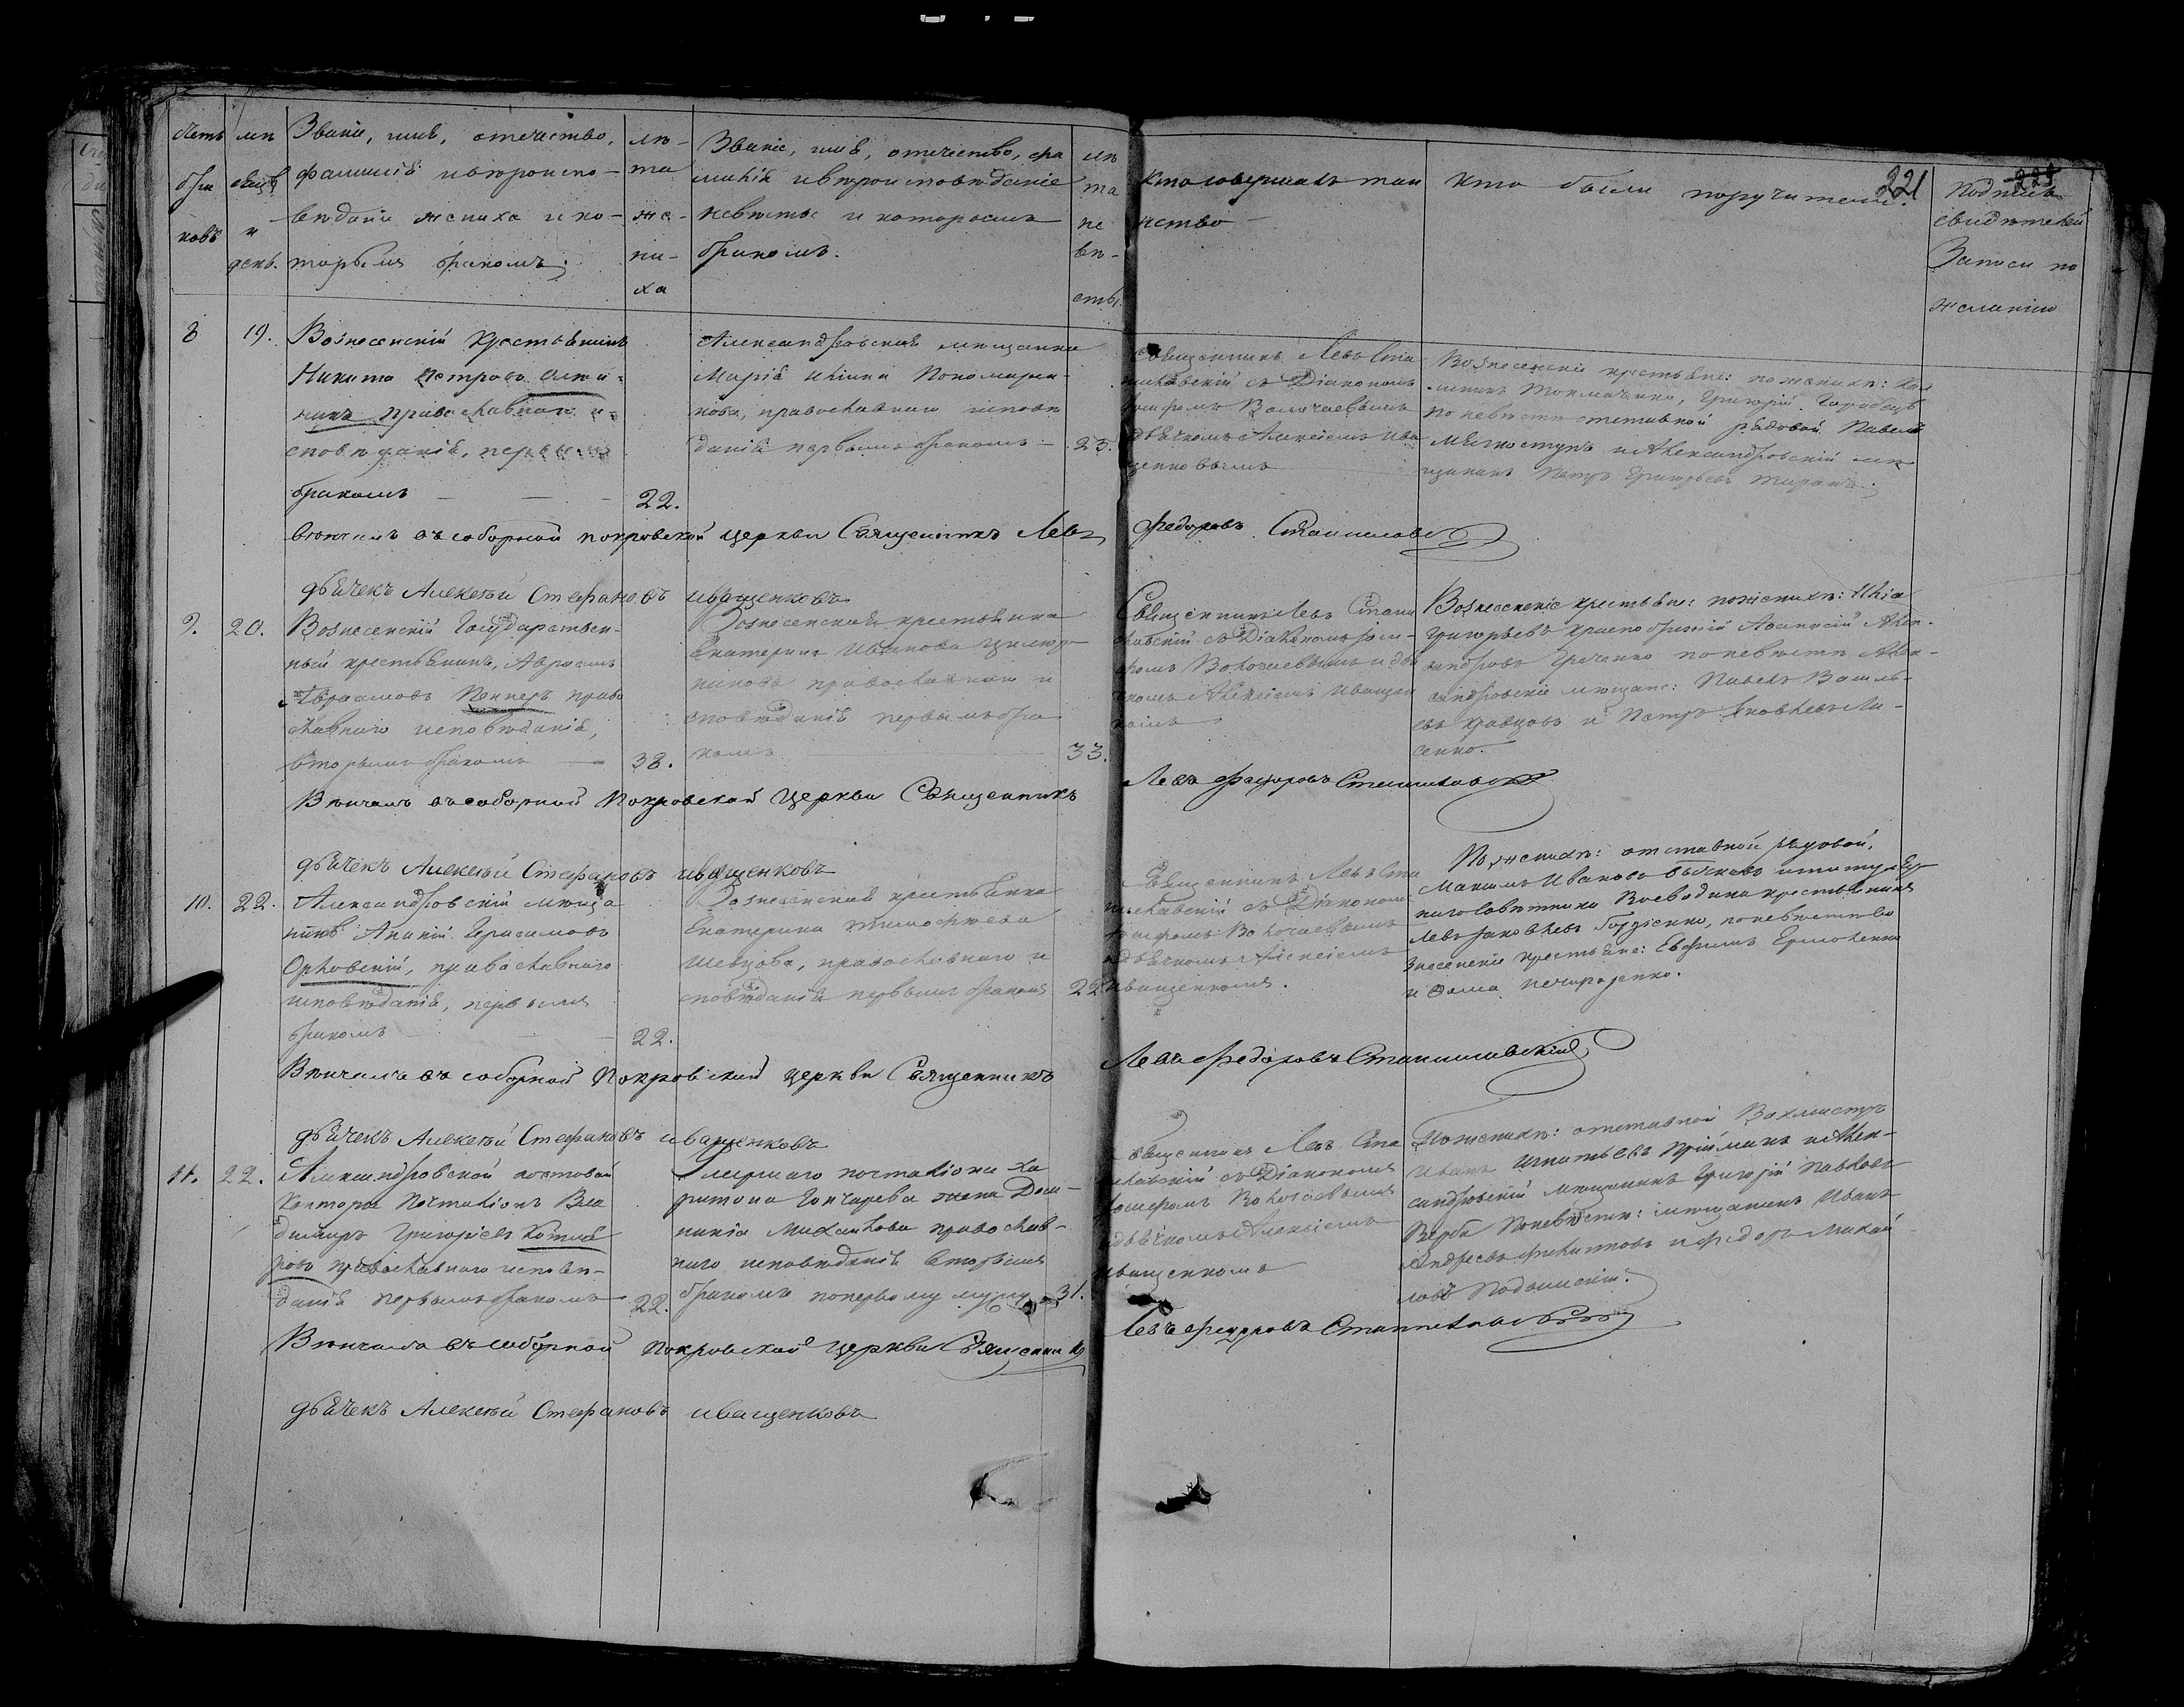 221
Счетъ браковъ
мѣсяцъ и день.
Званіе, имя, отечество,
фамилія и вѣроиспо-
вѣданіе жениха и ко-
торымъ бракомъ.
лѣ-
та
же-
ни-
ха
Званіе, имя, отечество, фа
милія и вѣроисповѣданіе
невѣсты и которымъ
бракомъ.
лѣ
та
не
вѣ-
сты.
Кто совершалъ таи
нство
Кто были поручители.
Подпись
свидѣтелей
Записи по
желанію
8 19.
Вознесенскій Крестьянинъ
Никита Петровъ
православнаго и-
сповѣданія, первымъ
бракомъ
22.
Александровская мѣщанка
Марія Пономарен-
кова, православнаго исповѣ
данія первымъ бракомъ
23.
Священникъ Левъ Ста
ниславскій съ Діакономъ
дьячкомъ Алексіемъ Ива
щенковымъ
Вознесенскіе крестьяне: по женихѣ:
Григорій
по невѣстѣ отставной рядовой Павелъ
и Александровскій мѣ
щанинъ Петръ Григорьевъ
Вѣнчалъ въ соборной покровской церкви Священникъ Левъ Федоровъ Станиславскій
дьячекъ Алексѣй Стефановъ иващенковъ
9. 20.
Вознесенскій Государствен-
ный крестьянинъ, Авраамъ
Авраамовъ Пеннеръ право
славнаго исповѣданія,
вторымъ бракомъ
38.
Вознесенская крестьянка
Екатерина Иванова
православнаго и
сповѣданія первымъ бра
комъ
33.
Священникъ Левъ Стани
славскій съ Діакономъ
и дья
чкомъ Алексіемъ Иващен
комъ
Вознесенскіе крестьяне: по женихѣ: Илія
Григорьевъ Аѳанасій Алек-
сандровъ Греченко по невѣстѣ Алек-
сандровскіе мѣщане: Павелъ Василь-
евъ Кравцовъ и Петръ Яковлевъ Ли-
сенко.
Вѣнчалъ въ соборной Покровской Церкви Священникъ Левъ Федоровъ Станиславскій
дьячекъ Алексѣй Стефановъ иващенковъ
10. 22.
Александровскій мѣща
нинъ Ананій Герасимовъ
Орловскій, православнаго
исповѣданія, первымъ
бракомъ
22.
Вознесенская крестьянка
Екатерина Тимофѣева
Шевцова, православнаго и
сповѣданія первымъ бракомъ
22
Священникъ Левъ Ста
ниславскій съ Діакономъ
и дьячкомъ Алексіемъ
Иващенкомъ.
По женихѣ: отставной рядовой,
Максимъ Ивановъ Бычковъ и титуляр
наго совѣтника Воеводина крестьянинъ
Левъ Яковлевъ Гордіенко, по невѣстѣ Во
знесенскіе крестьяне: Евфимъ Ермоленко
и Ѳома
Вѣнчалъ въ соборной Покровской церкви Священникъ Левъ Федоровъ Станиславскій
дьячекъ Алексѣй Стефановъ иващенковъ
11. 22.
Александровской почтовой
Конторы Почталіонъ Вла
димиръ Григорьевъ
православнаго исповѣ-
данія первымъ бракомъ
22.
Умершаго почталіона Ха
ритона Гончарева жена Дом-
никія Михайлова православ-
наго исповѣданія вторымъ
бракомъ по первому мужу
31.
Священникъ Левъ Ста
ниславскій съ Діакономъ
и дьячкомъ Алексіемъ
Иващенкомъ
По женихѣ: отставной Вахмистръ
Иванъ Игнатьевъ Прійманъ и Алек-
сандровскій мѣщанинъ Григорій Павловъ
Верба По невѣстѣ: мѣщанинъ Иванъ
Андреевъ Филиповъ и Федоръ Михай
ловъ
Вѣнчалъ въ соборной Покровской церкви Священникъ Левъ Федоровъ Станиславскій
дьячекъ Алексѣй Стефановъ иващенковъ